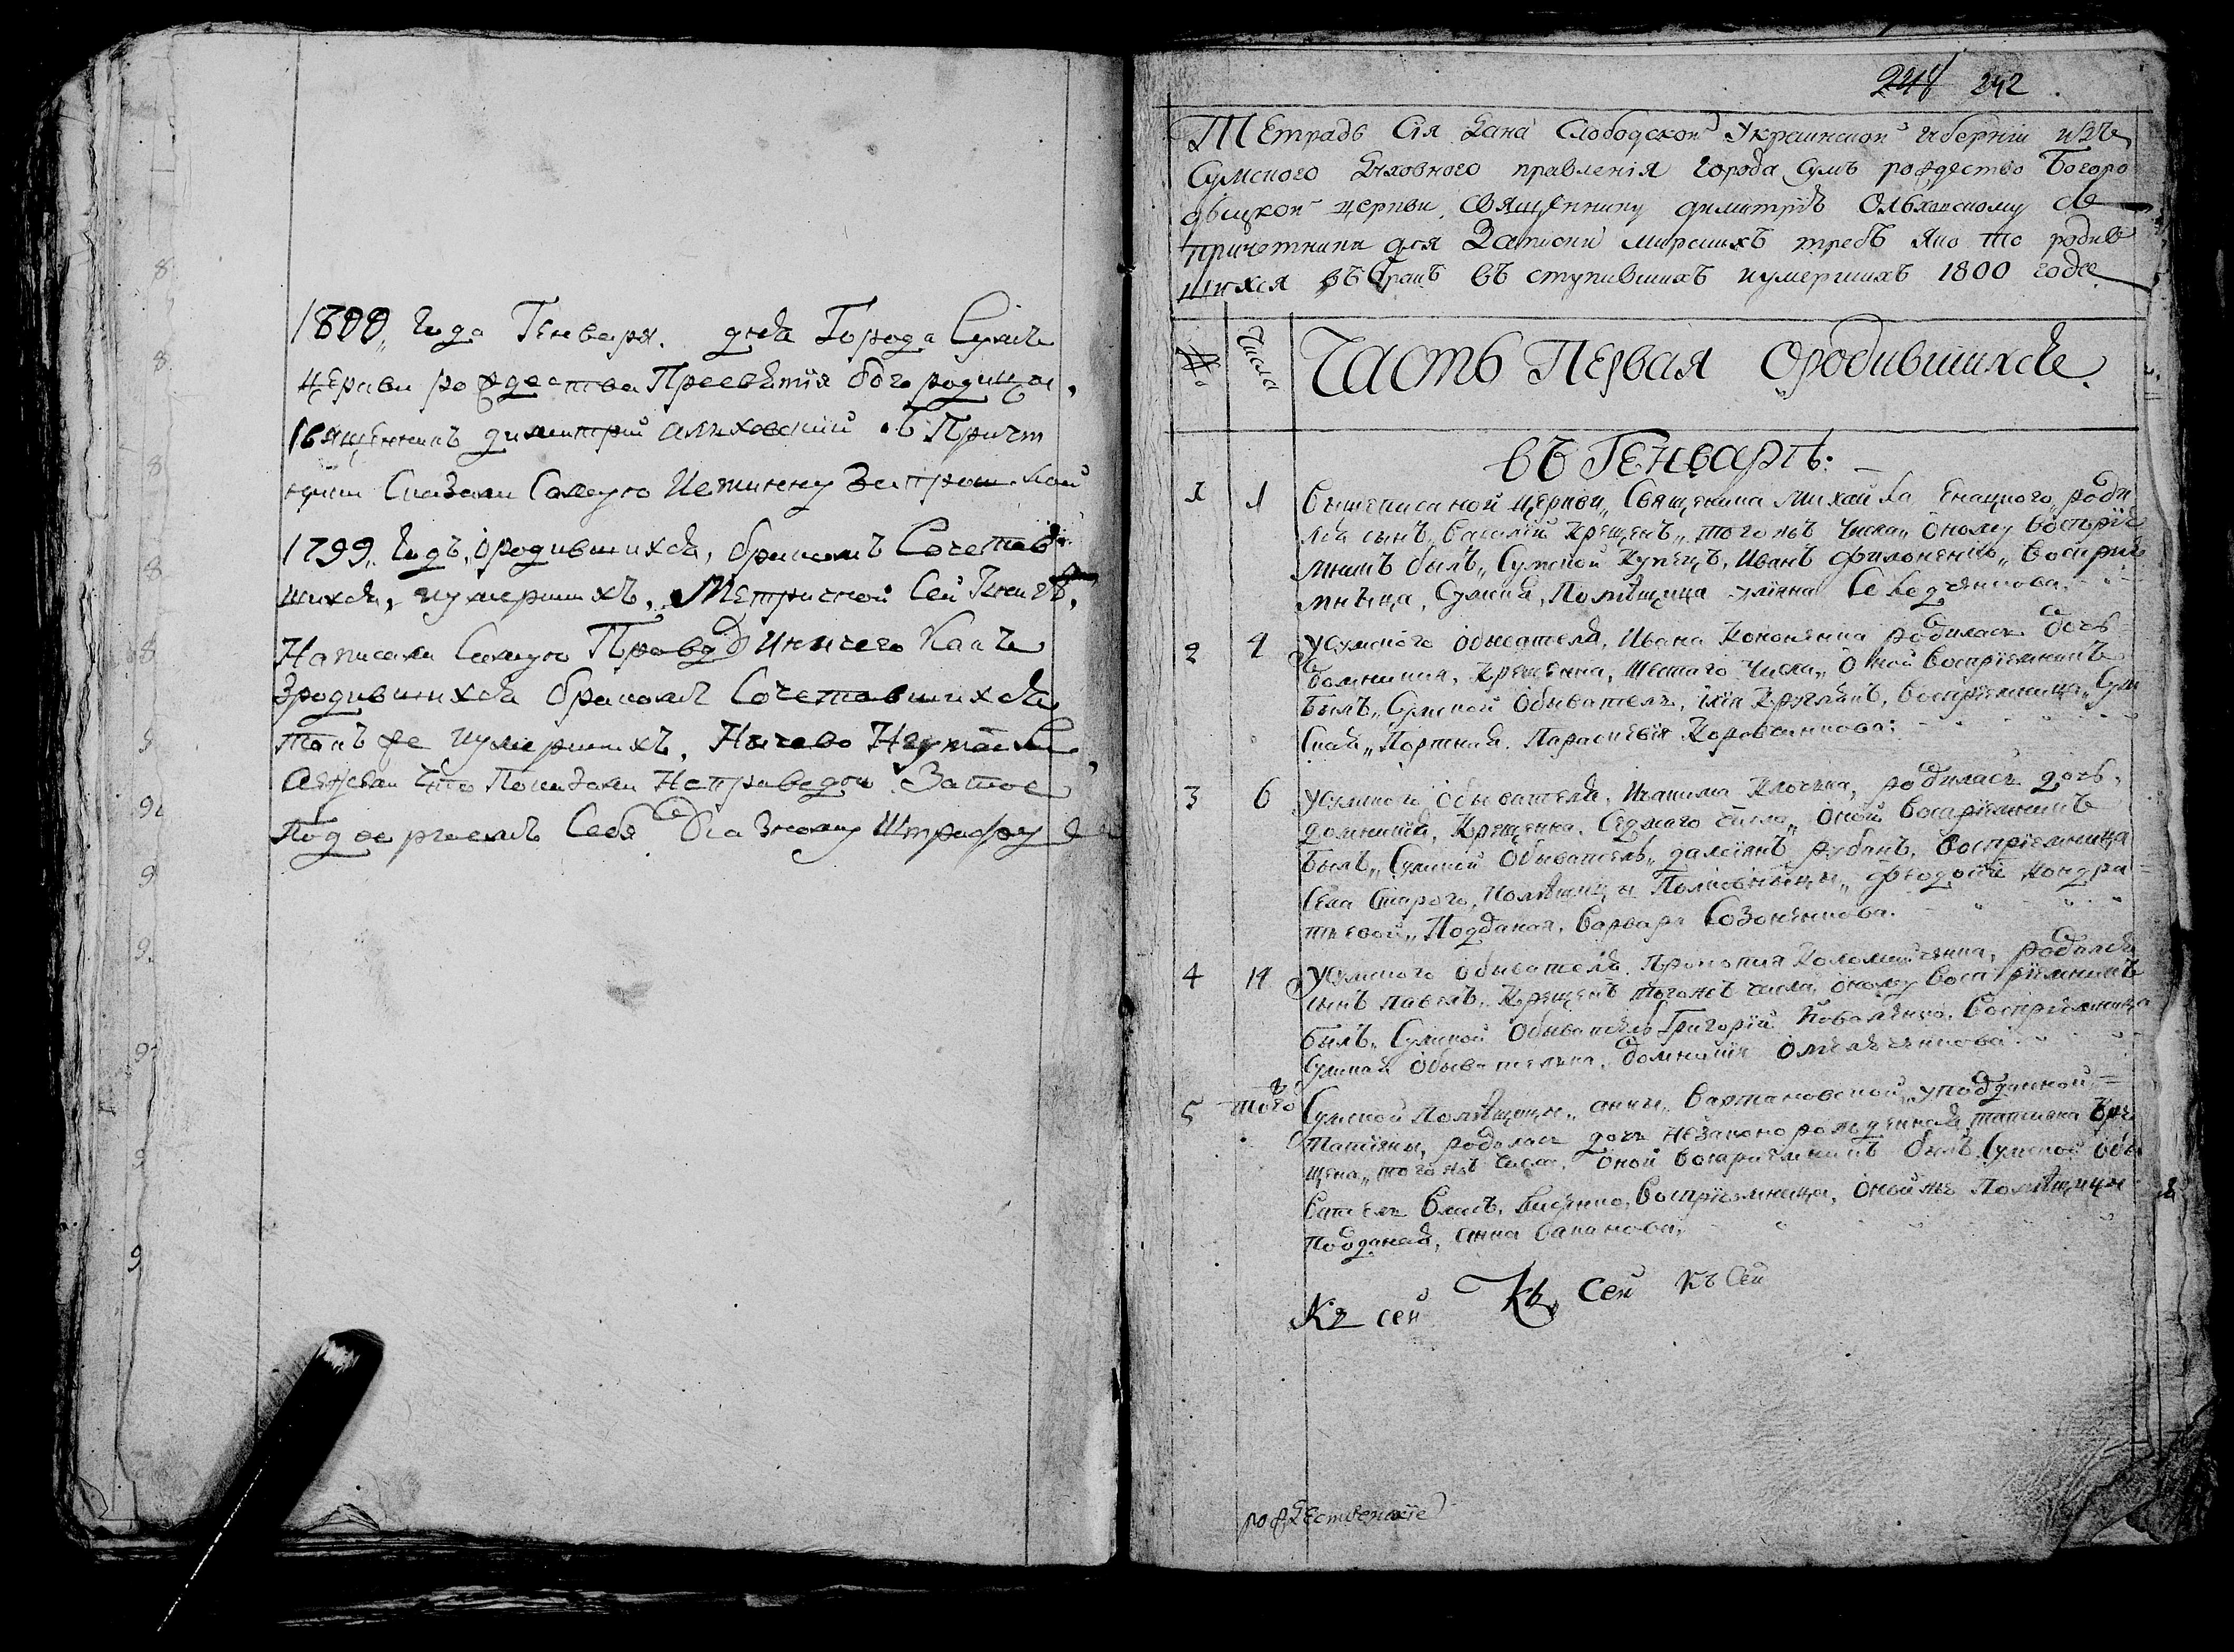 1800, Года Генваря. дня Города Сумъ
церкви рождества Пресвятїя богородицы,
священникъ димитрий ольховский съ Причет
ники Сказали Самую Истинну Запрошлой
1799, Годъ, ородившихся, бракомъ Сочетав
шихся, иумершихъ, Метрической Сей Книгѣ,
Написали Самую Правду Иничего Какъ
Зродившихся бракомъ Сочетавшихся
такъ же иумершихъ, Ничево Неутаили
Аежели что Показали Неправедно Затое
Подвергаемъ Себя Указному Штрафу
8
8
8
8
8
9
9
9
9
9
9
242
Тетрадь Сїя Дана Слободскои Украинскои Губернїи изъ
Сумского Духовного правленїя города Сумъ рождество Богоро
двицкои церкви Священнику димитрїю Ольховскому съ
причетники для Записки мирскихъ требъ яко то родив
шихся въ бракъ въ ступившихъ иумершихъ 1800 года
№
Числа
Часть Первая ородившихся.
въ Генваргъ:
1 1 Вышеписаной церкви, Священика михаила Енацкого, роди
лся сынъ, Василїй Крещенъ, тогожъ Числа, Оному Воспрїе
мникъ былъ, Сумской Купецъ, Иванъ филоненко, Воспрїе
мница, Сумска, Помѣщица улїяна
2 4 Усумского обывателя, Ивана Кононенка родилась дочь
домникия, Крещенна, Шестаго Числа, Оной Воспрїемникъ
былъ, Сумской Обыватель, илїя Кружлякъ, Воспрїемница, Сум
ская, Портная, Параскевїя Коровянкова:
3 6 Усумского обывателя, Иоакима Клочка, родилась дочь,
домникия, Крещенна, Седмаго числа, Оной воспрїемникъ
былъ, Сумской Обыватель, далїянъ рубанъ, воспрїемница
Села Старого, помѣщицы Полковницы, феодосїи Кондра
тьевой, Подданая, Варвара Созоненкова.
4 14 Усумского обывателя Прокопия Коломийченка, родился
сынъ павелъ, Крещенъ тогожъ числа, Оному Воспрїемникъ
былъ, Сумской Обыватель Григорїй Коваленко, Воспрїемница
Сумская Обывателька, домникїя Омелченкова
5 того Сумской Помѣщицы, анны, Вартановской, уподданной
Татїяны, родилась дочь Незаконорожденная, татияна Кре
щена, тогожъ числа, Оной воспрїемникъ былъ, Сумской обы
ватель Власъ, Воспрїемница, Онойже Помѣщицы
Подданая, Анна
Къ сей Къ Сей Къ Сей
рождественскїе